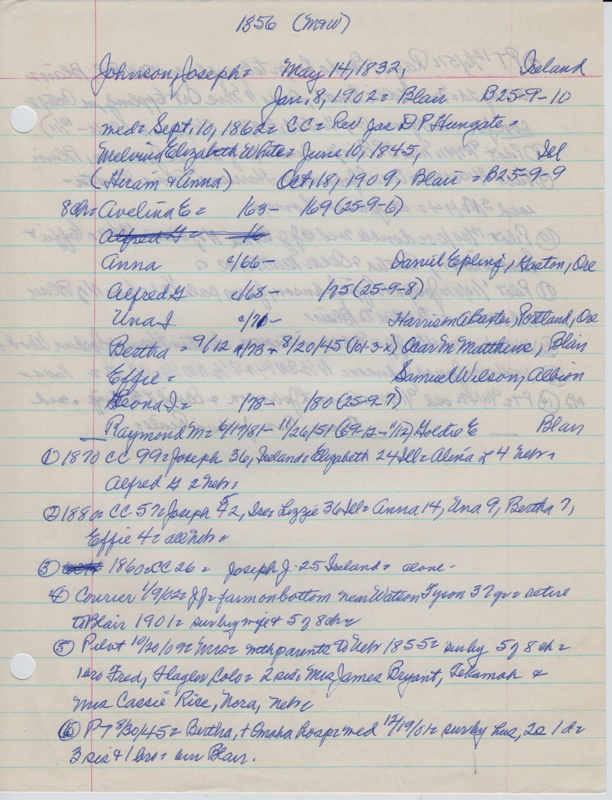 1856 (M&W)
Johnson, Joseph = May 14, 1832, Ireland
Jan, 8, 1902 = Blair B25-9-10
med = Sept, 10, 1862 = CC = Rev Jas D P Hungate =
Melvina Elizabeth White = June 10, 1845, Ill
(Hiram & Anna) Oct, 18, 1909, Blair = B25-9-9
8 ch = Avelina E = 163- 169 (25-9-6)
Alfred G = 16
Anna c/66- Daniel Epling, Gaston, Ore
Alfred G c/68- 1/75 (25-9-8)
Una I c/71- Harrison A Baxter, Portland, Ore
Bertha = 9/12 c/73 = 8/20/45 (61-3-x) Oscar M Matthews, Blair
Effie = Samuel Wilson, Albion
Leona I = 178- 180 (25-9-7)
Raymond M = 6/17/81- 11/26/51 (69-12-11/12) Goldie E Blair
① 1870 CC 99 = Joseph 36, Ireland = Elizabeth 24 Ill = 4 Nebr =
Alfred G 2 Nebr =
② 1880 = CC 57 = Joseph 52, Ire = Lizzie 36 Ill = Anna 14, Una 9, Bertha 7,
Effie 4 = all Nbr =
③ 1860 = CC 26 = Joseph J - 25 Ireland = alone -
④ Courier 1/9/02 = JJ = farm on bottom near Watson Tyson 37 yr = retire
to Blair 1901 = surv by wife & 5 of 8 ch =
⑤ Pilot 10/20/09 = Mrs = with parents to Nebr 1855 = surv by 5 of 8 ch =
1 bro Fred, Flagler, Colo = 2 sis = Mrs James Bryant, Tekamah &
Mrs Cassie Rise, Nora, Nebr =
⑥ P-T 8/30/45 = Bertha, + Omaha hosp = med 12/19/01 = surv by hus, 2s 1d =
3 sis & 1 bro = bur Blair.